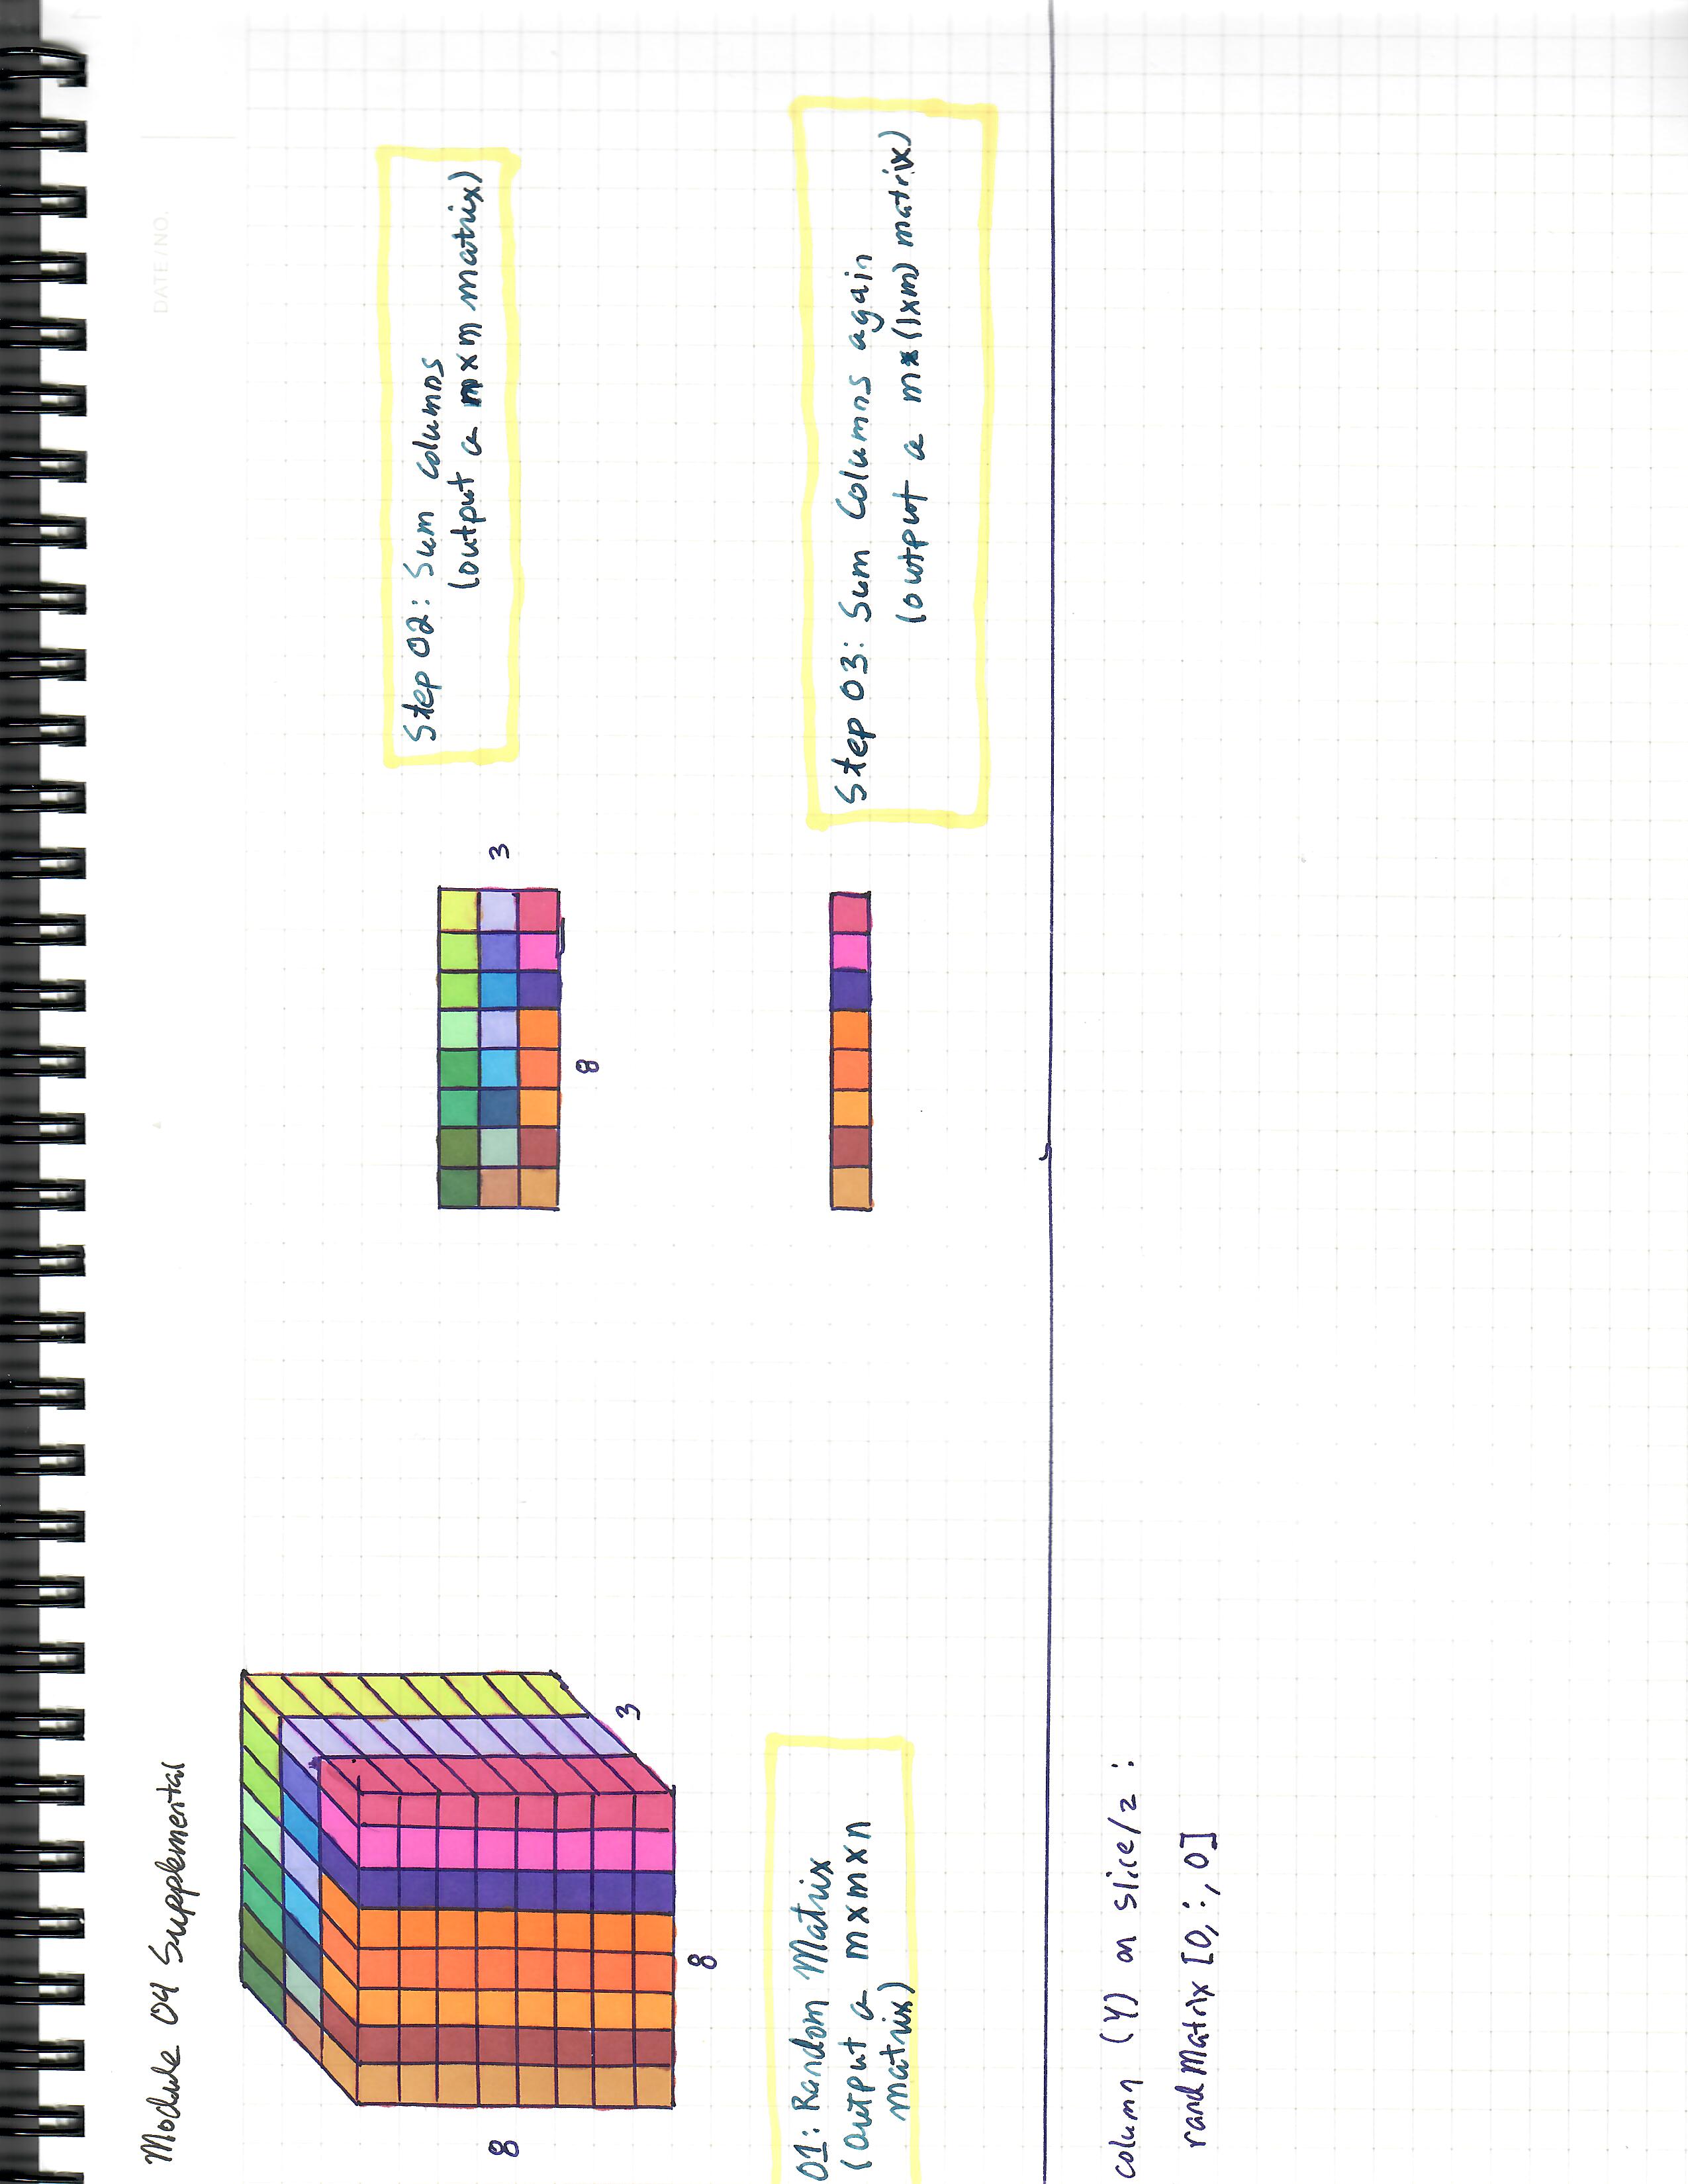 DATE/NO.
Module 04 Supplemental
8
8
3
01: Random Matrix
(output a m x m x n
matrix)
3
8
Step 02: Sum columns
(output a m x n matrix)
Step 03: Sum Columns again
(output a (1xm) matrix)
column (Y) on slice/z :
randMatrix [0, :, 0]